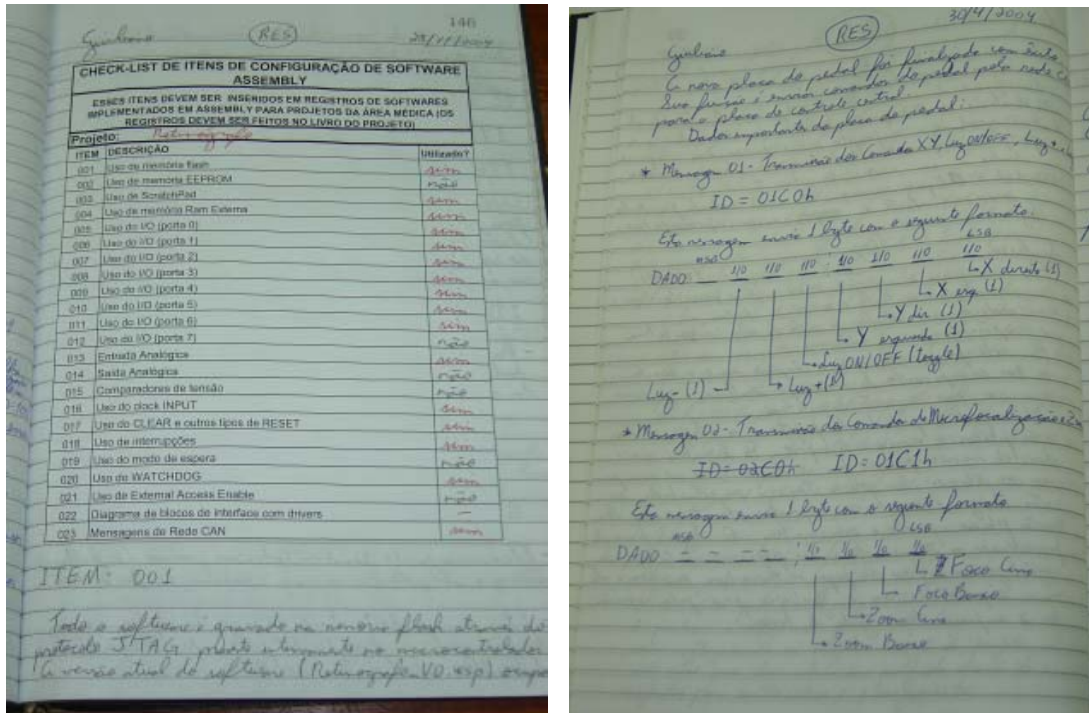 146
Giuliano RES 28/4/2004
CHECK-LIST DE ITENS DE CONFIGURAÇÃO DE SOFTWARE
ASSEMBLY
ESSES ITENS DEVEM SER INSERIDOS EM REGISTROS DE SOFTWARES
IMPLEMENTADOS EM ASSEMBLY PARA PROJETOS DA ÁREA MÉDICA (OS
REGISTROS DEVEM SER FEITOS NO LIVRO DO PROJETO)
Projeto: Retinógrafo
ITEM DESCRIÇÃO Utilizado?
001 Uso de memória flash sim
002 Uso de memória EEPROM não
003 Uso de ScratchPad sim
004 Uso de memória Ram Externa sim
005 Uso do I/O (porta 0) sim
006 Uso do I/O (porta 1) sim
007 Uso do I/O (porta 2) sim
008 Uso do I/O (porta 3) sim
009 Uso do I/O (porta 4) sim
010 Uso do I/O (porta 5) sim
011 Uso do I/O (porta 6) sim
012 Uso do I/O (porta 7) não
013 Entrada Analógica sim
014 Saída Analógica não
015 Comparadores de tensão não
016 Uso do clock INPUT sim
017 Uso do CLEAR e outros tipos de RESET sim
018 Uso de interrupções sim
019 Uso do modo de espera não
020 Uso do WATCHDOG sim
021 Uso de External Access Enable não
022 Diagrama de blocos de interface com drivers –
023 Mensagens de Rede CAN sim
ITEM: 001
Todo o software é gravado na memória flash através do
protocolo JTAG presente internamente no microcontrolador
A versão atual do software
30/4/2004
RES
Giuliano
A nova placa do pedal foi finalizada com êxito
Sua função é enviar comandos do pedal pela rede
para a placa de controle central.
Dados importantes da placa do pedal:
* Mensagem 01 - Transmissão dos Comandos XY, Luz ON/OFF, Luz +
ID = 01C0h
Esta mensagem envia 1 byte com o seguinte formato.
MSB LSB
DADO _ 1/0 1/0 1/0 1/0 1/0 1/0 1/0
X direito (1)
X esq. (1)
Y dir (1)
Y esquerdo (1)
Luz ON/OFF (toggle)
Luz - (1) Luz + (1)
* Mensagem 02 - Transmissão dos Comandos de Microfocalização e
ID = 02C0h ID: 01C1h
Esta mensagem envia 1 byte com o seguinte formato.
MSB LSB
DADO _ _ _ _ 1/0 1/0 1/0 1/0
Foco Cima
Foco Baixo
Zoom Cima
Zoom Baixo